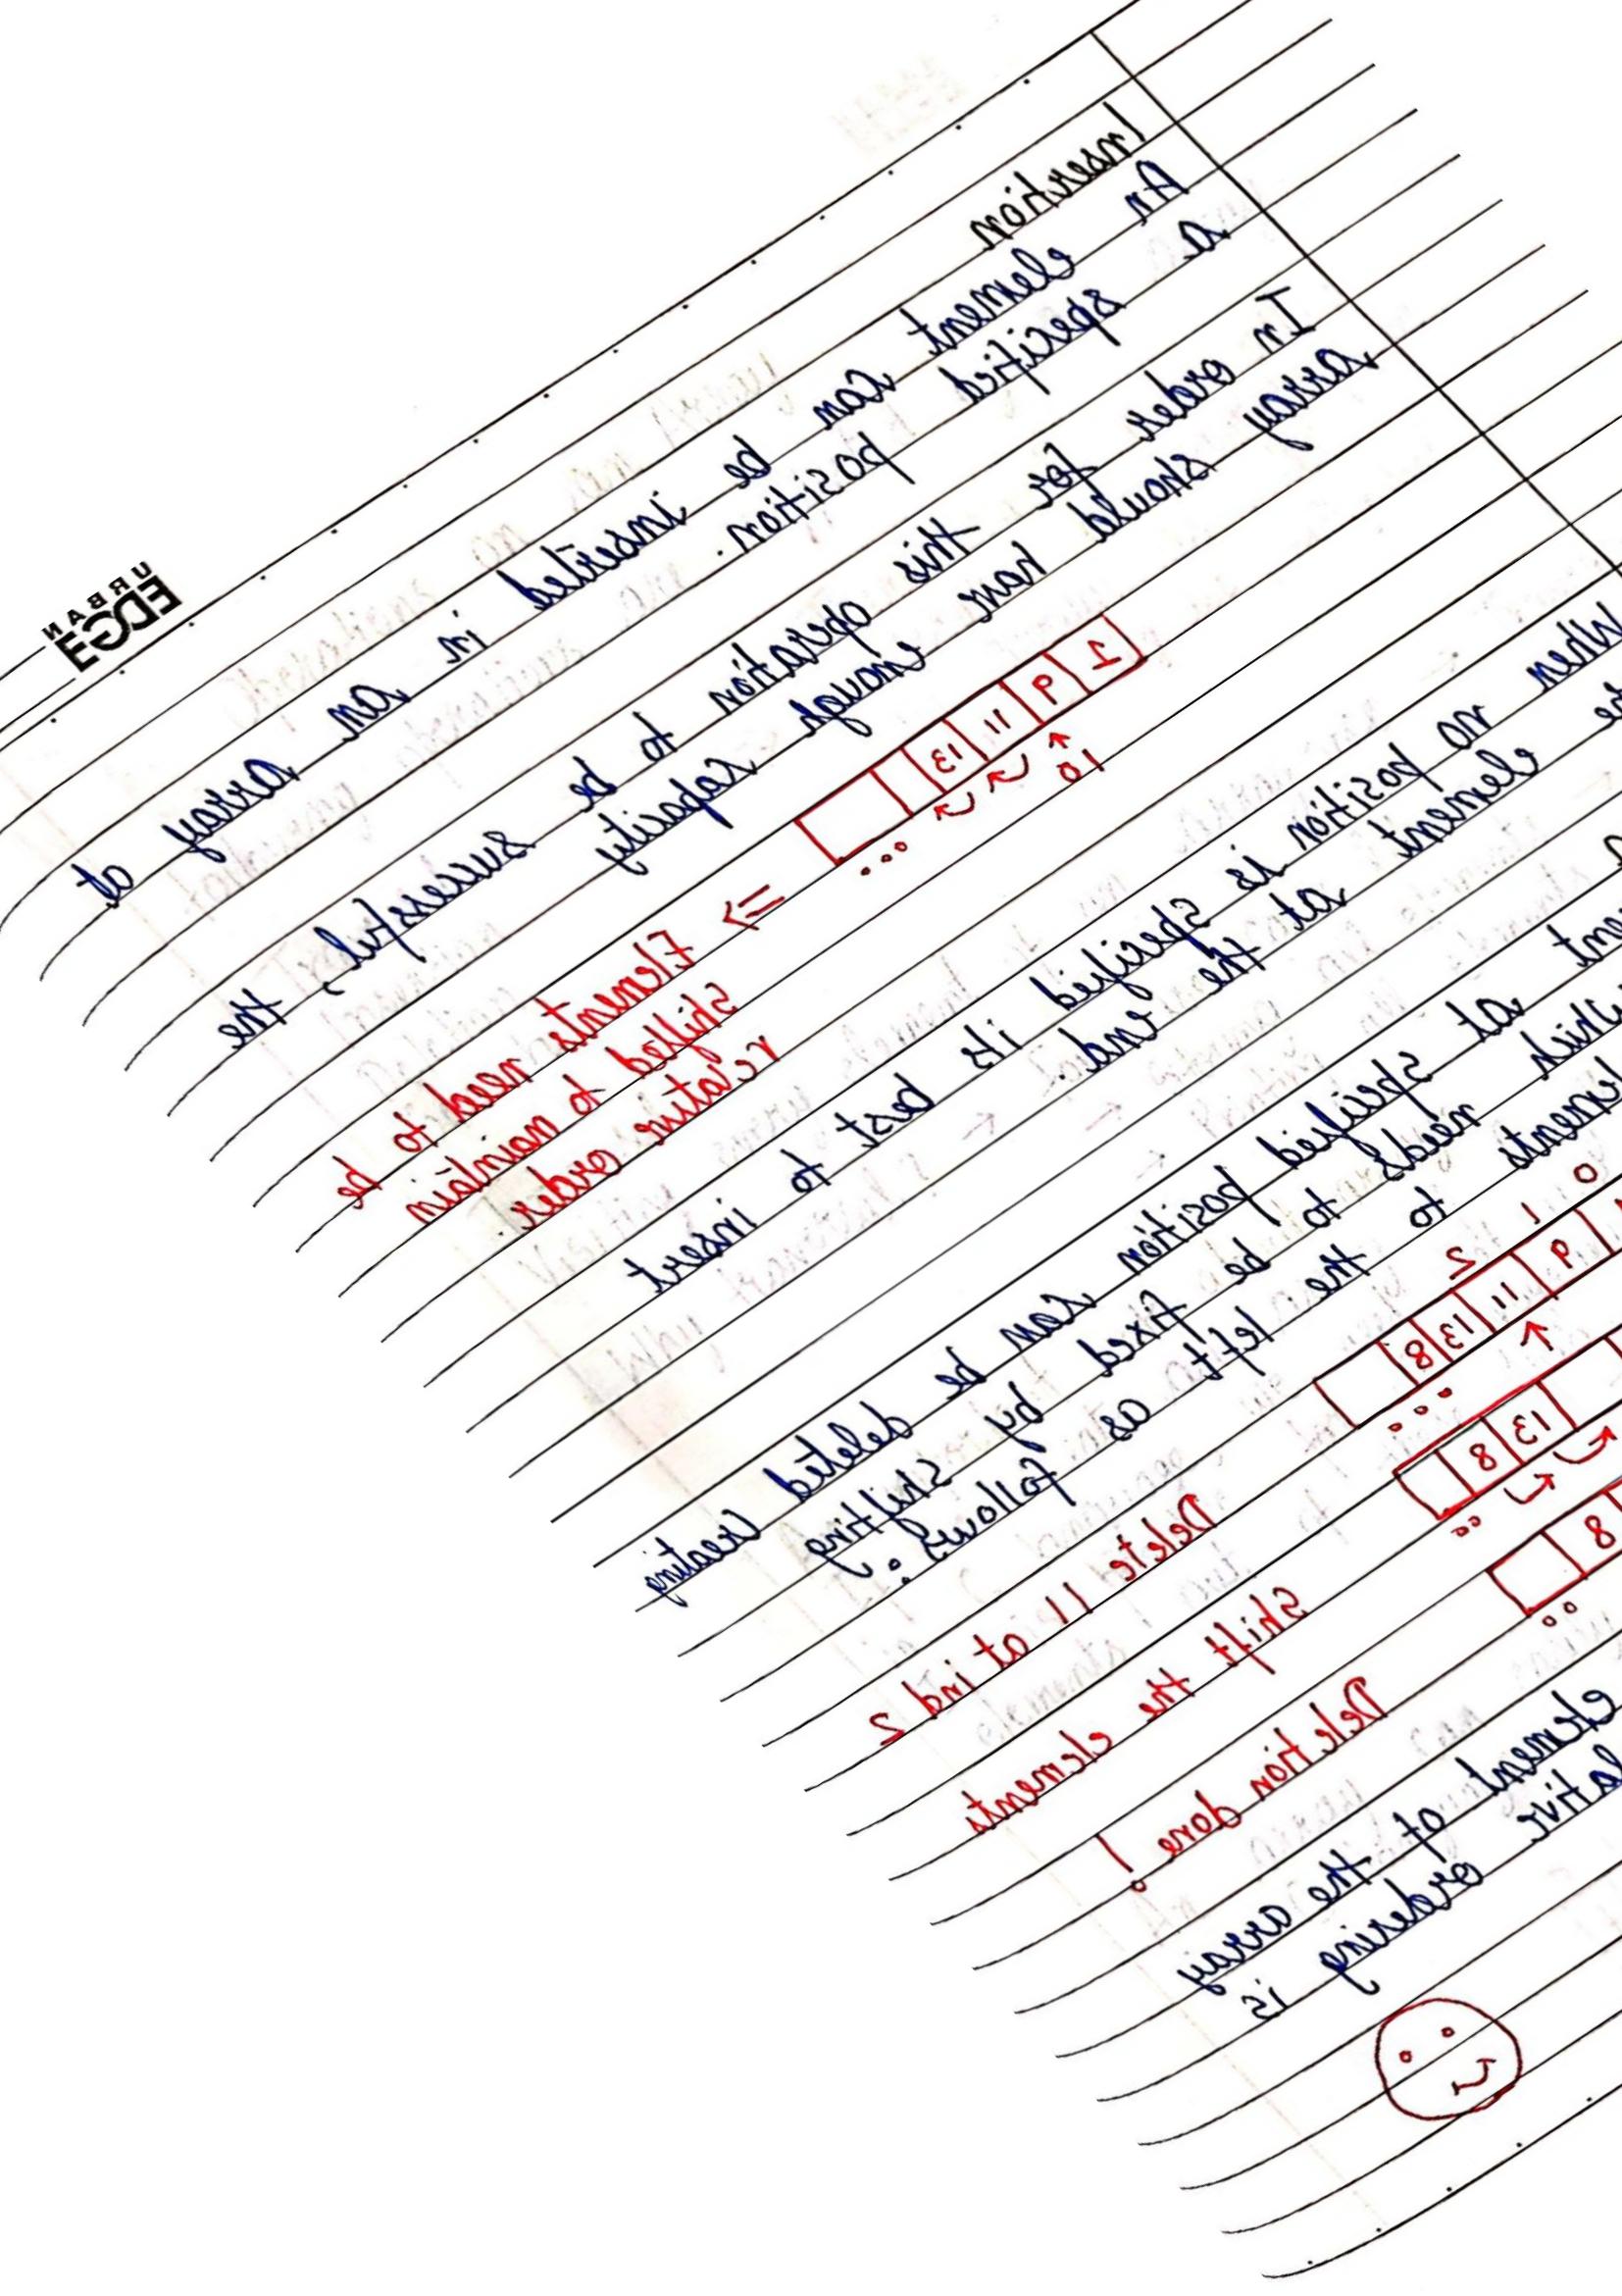 URBAN
EDGE
Insertion
An element can be inserted in an array at
a specified position.
In order for this operation to be successful, the
array should have enough capacity
1 9 11 13
10 ...
⇐ Elements need to be
shifted to maintain
relative order.
When no position is specified its best to insert
element at the end.
at specified position can be deleted creating
needs to be fixed by shifting
to the left as follows :
0 1 2
9 11 13 8
... Delete 11 at ind 2
13 8
.. Shift the elements
8
.. Deletion done !
element of the array
ordering is